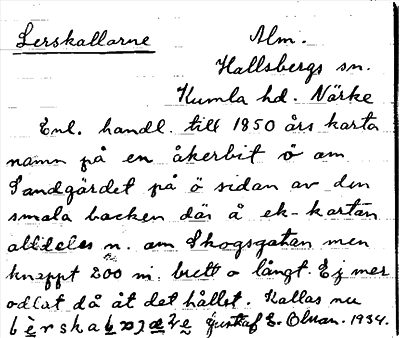 Lerskallarne Alm.
Hallsbergs sn.
Kumla hd. Närke
Enl. handl. till 1850 års karta
namn på en åkerbit ö om
Sandgärdet på ö sidan av den
smala backen där å ek-kartan
alldeles n. om Skogsgatan men
knappt 200 m. brett o långt. Ej mer
odlat då åt det hållet. Kallas nu
Gustaf E. Olman. 1934.